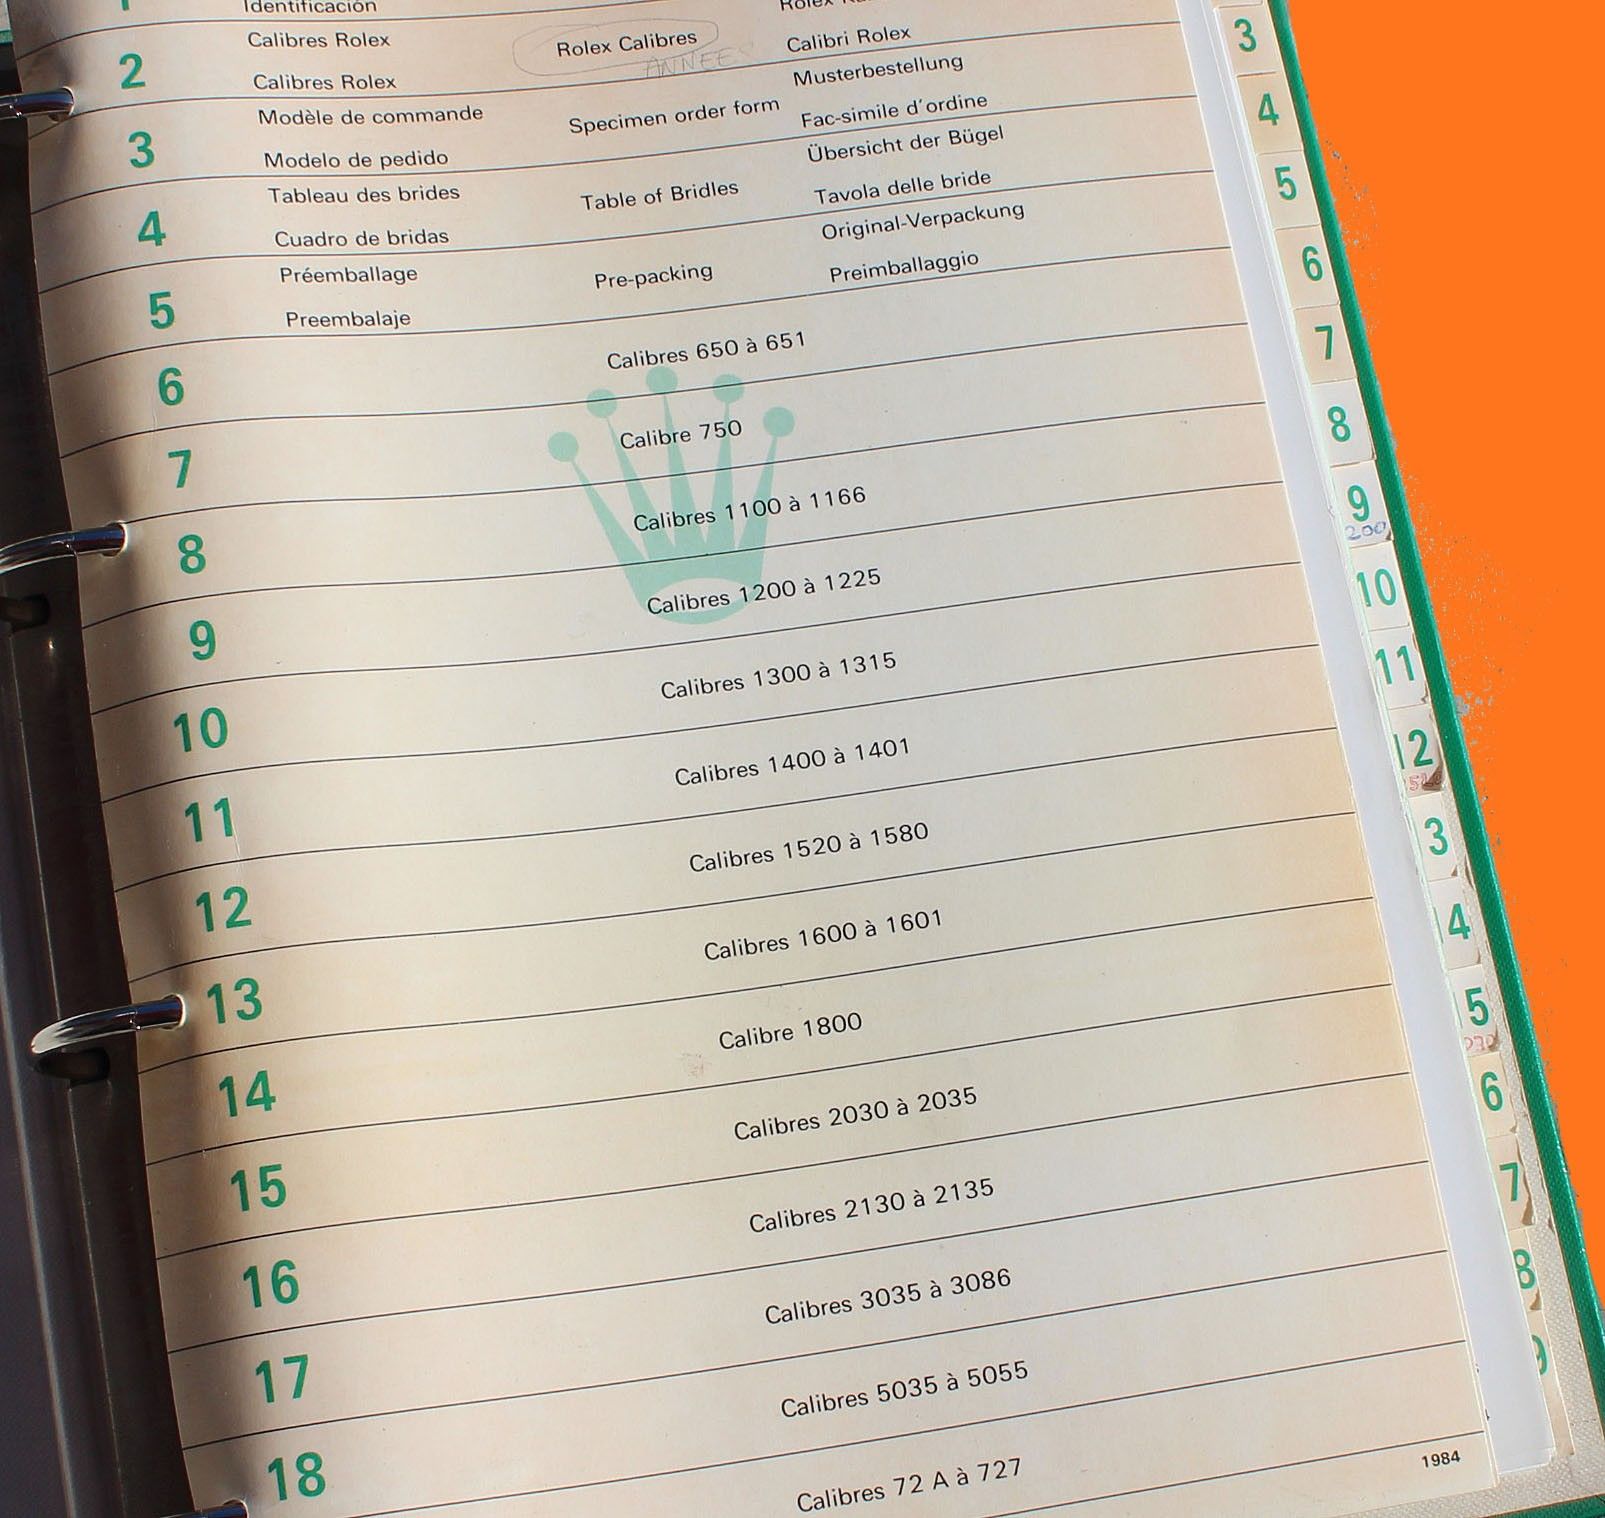 1 Identificación
Calibres Rolex
2 Rolex Calibres Calibri Rolex
ANNEES
Calibres Rolex Musterbestellung
Modèle de commande
3 Specimen order form Fac-simile d'ordine
Modelo de pedido Übersicht der Bügel
Tableau des brides
4 Table of Bridles Tavola delle bride
Cuadro de bridas Original-Verpackung
Préemballage
5 Pre-packing Preimballaggio
Preembalaje
6 Calibres 650 à 651
7 Calibre 750
8 Calibres 1100 à 1166
9 Calibres 1200 à 1225
10 Calibres 1300 à 1315
11 Calibres 1400 à 1401
12 Calibres 1520 à 1580
13 Calibres 1600 à 1601
14 Calibre 1800
15 Calibres 2030 à 2035
16 Calibres 2130 à 2135
17 Calibres 3035 à 3086
18 Calibres 5035 à 5055
Calibres 72 A à 727
1984
3
4
5
6
7
8
9
200
10
11
12
3
14
15
6
7
8
9